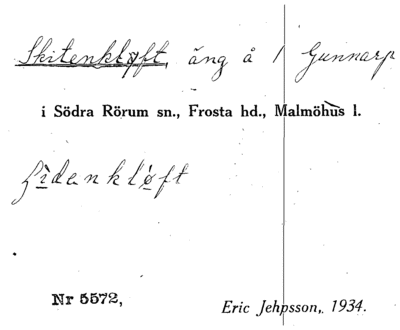 Skitenkløft, äng å 1 Gunnarp
i Södra Rörum sn., Frosta hd., Malmöhus l.
Nr 5572,
Eric Jehpsson, 1934.